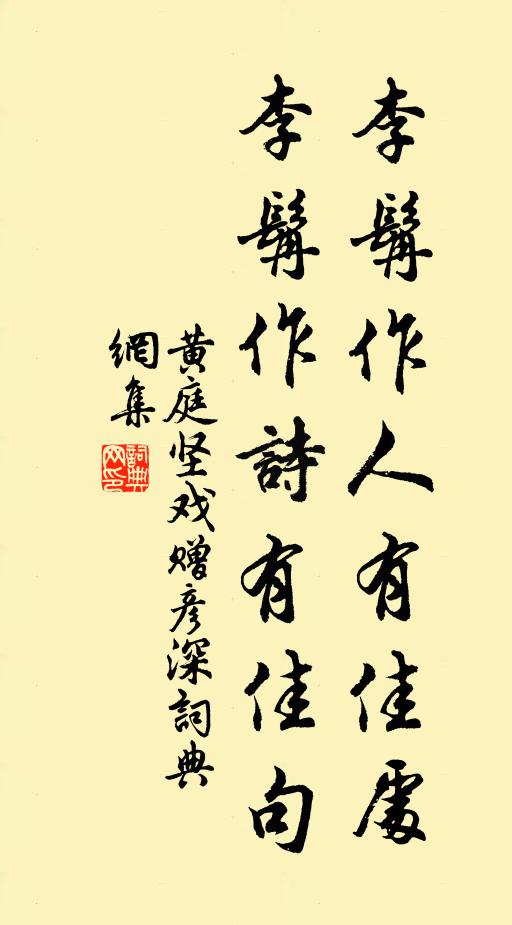 李髯作人有佳處
李髯作詩有佳句
黃庭坚戏赠彦深詞典
網集
詞典
网印